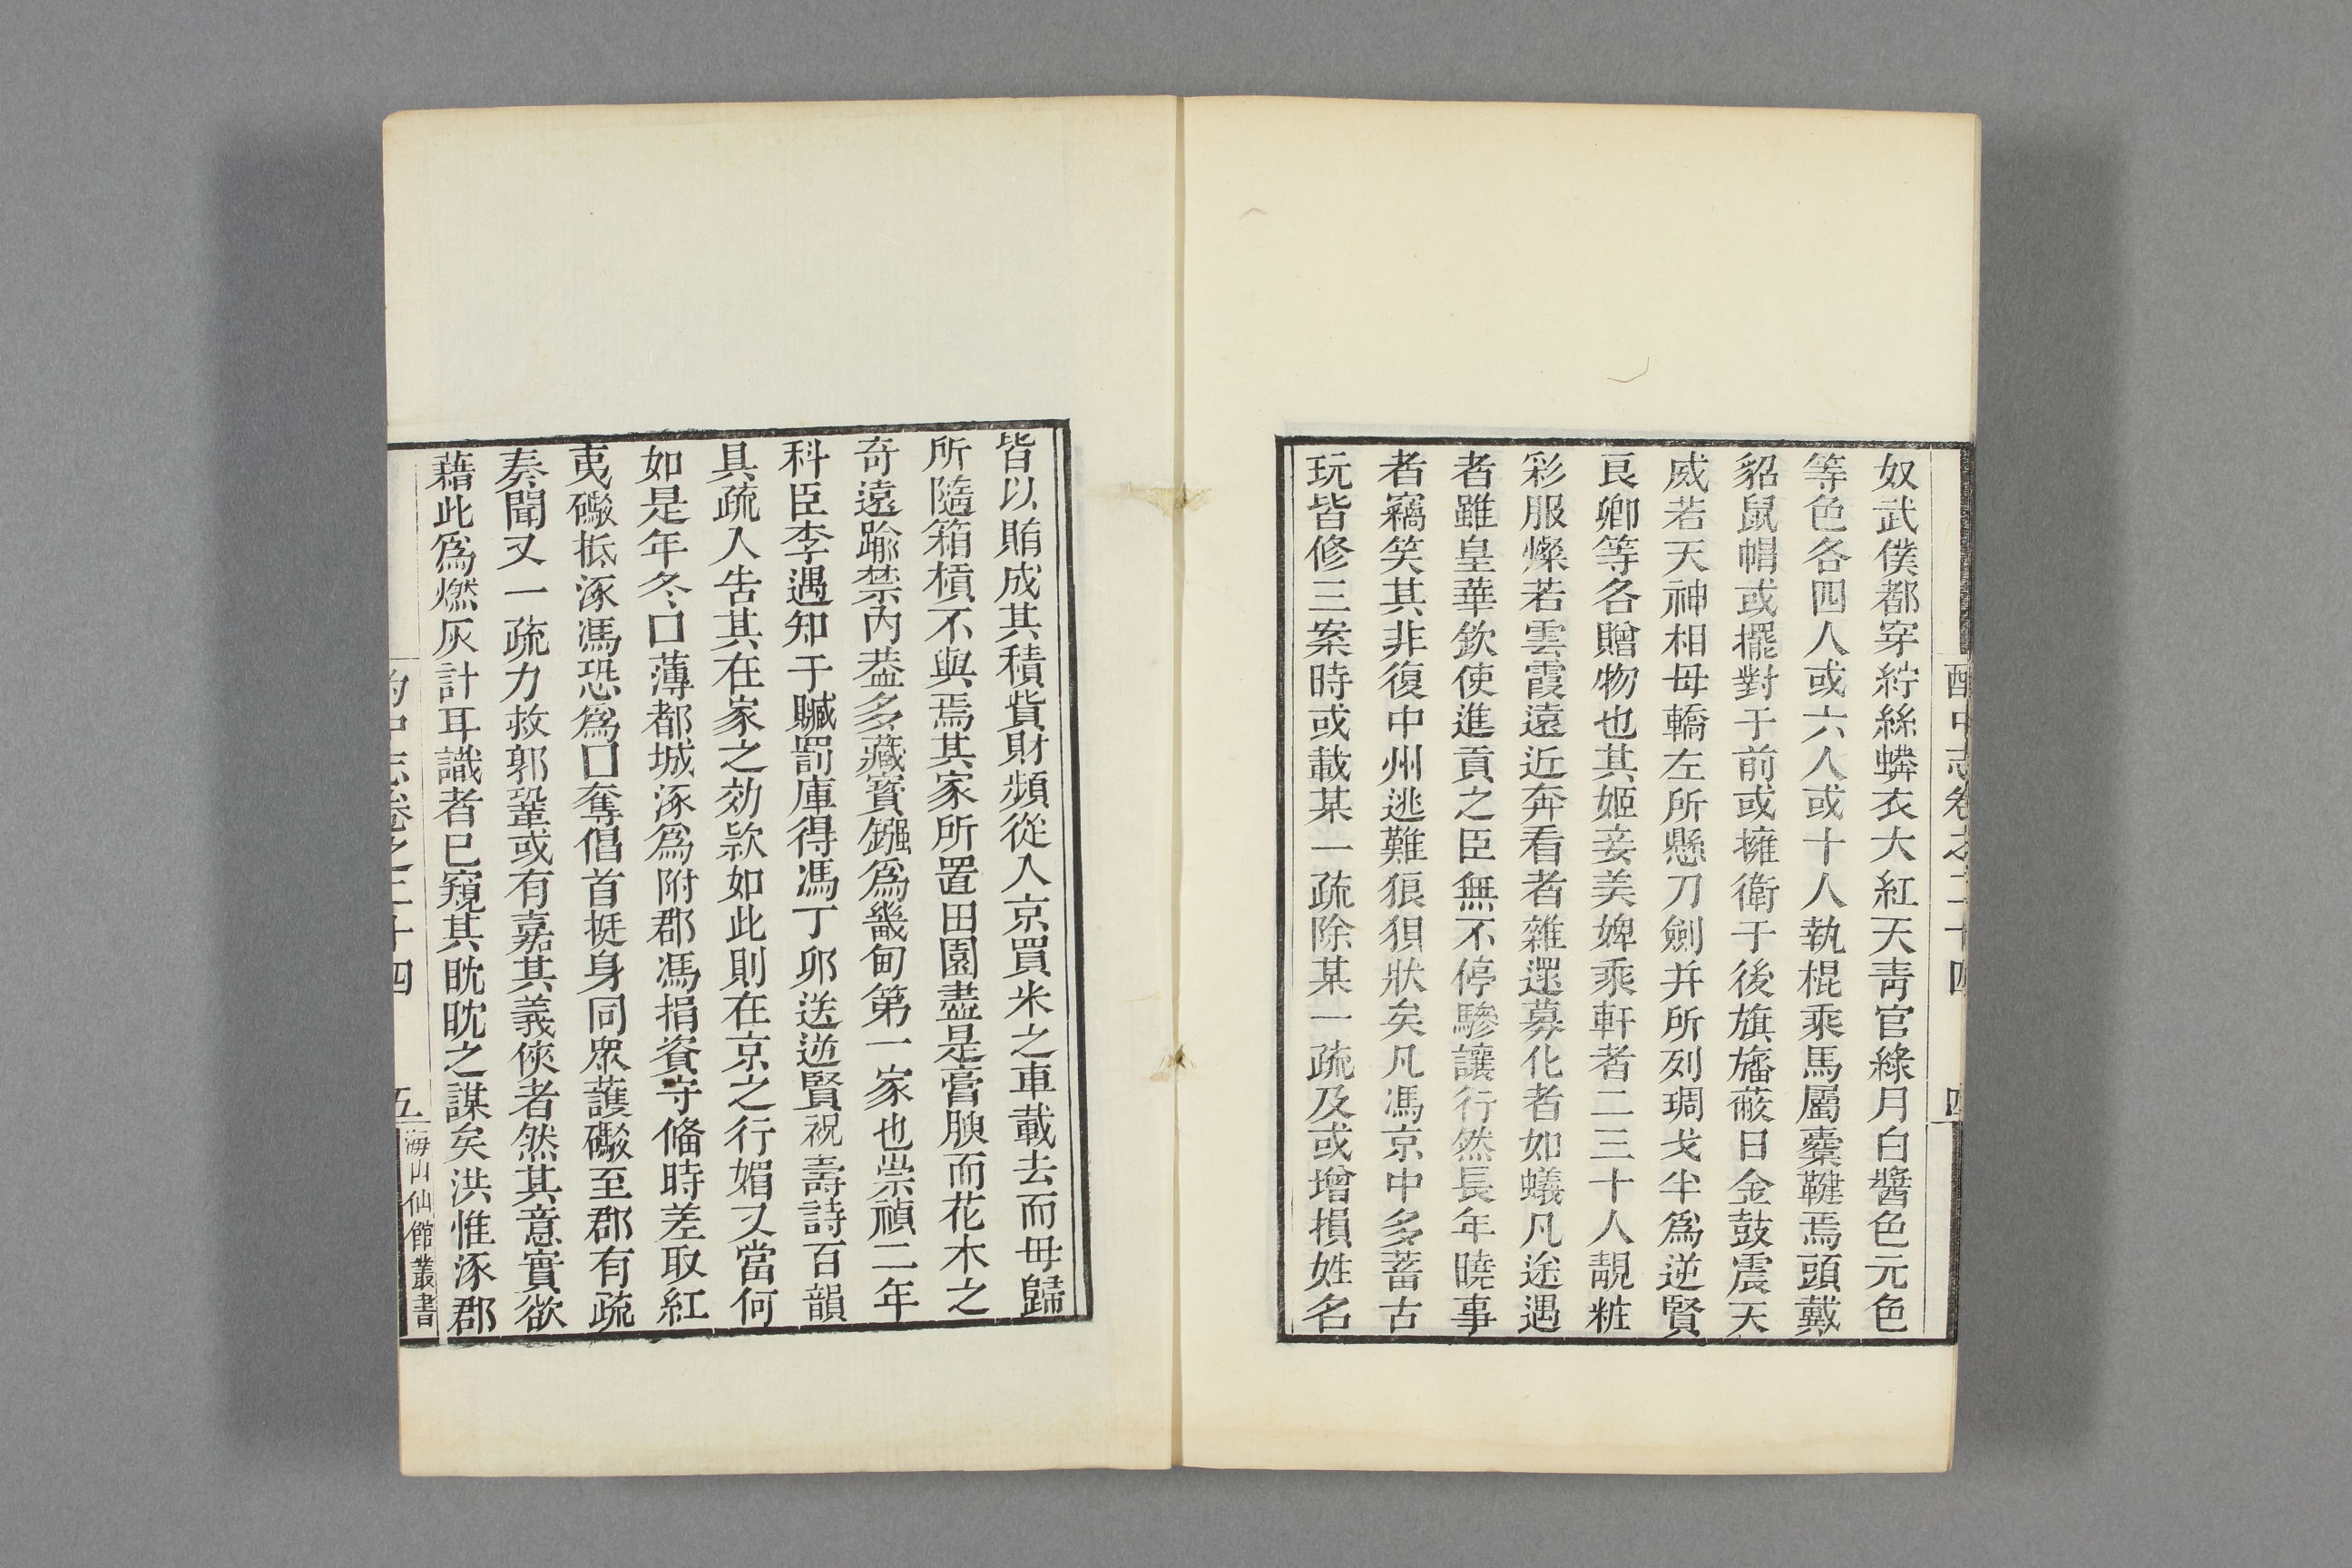 酌中志卷之二十四
四
奴武僕都穿紵絲蟒衣大紅天青官綠月白醬色元色
等色各四人或六人或十人執棍乘馬屬櫜鞬焉頭戴
貂鼠帽或擺對于前或擁衛于後旗旛蔽日金鼓震天
威若天神相母轎左所懸刀劍并所列琱戈半為逆賢
良卿等各贈物也其姬妾美婢乘軒者二三十人靚粧
彩服燦若雲霞遠近奔看者雜還募化者如蟻凡途遇
者雖皇華欽使進貢之臣無不停驂讓行然長年曉事
者竊笑其非復中州逃難狼狽狀矣凡馮京中多蓄古
玩皆修三案時或載某一疏除某一疏及或增損姓名
皆以賄成其積貲財頻從入京買米之車載去而毋歸
所隨箱槓不與焉其家所置田園盡是膏腴而花木之
奇遠踰禁內葢多藏寳鏹爲畿甸第一家也崇禎二年
科臣李遇知于贓罰庫得馮丁卯送逆賢祝壽詩百韻
具疏入告其在家之効欵如此則在京之行媚又當何
如是年冬口薄都城涿爲附郡馮捐資守俻時差取紅
夷礮抵涿馮恐爲口奪倡首挺身同眾護礮至郡有疏
奏聞又一疏力救郭鞏或有嘉其義俠者然其意實欲
藉此爲燃灰計耳識者已窺其眈眈之謀矣洪惟涿郡
酌中志卷之二十四
五
海山仙館叢書